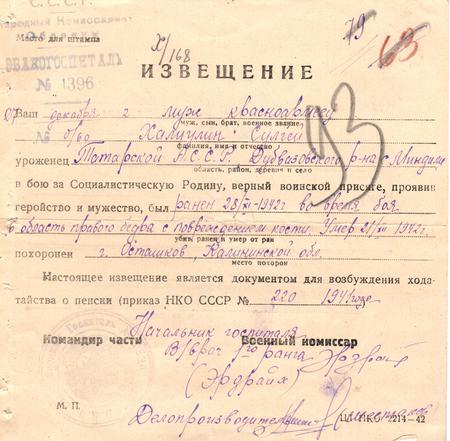 С. С. С. Р.
Народный Комиссариат
Обороны
Место для штампа
ЭВАКОГОСПИТАЛЬ
№ 1396
X/168
79
63
93
ИЗВЕЩЕНИЕ
Ваш муж красноармеец
муж, сын, брат, военное звание
Халиулин
фамилия, имя и отчество
уроженец Татарской АССР, р-на с.
область, район, деревня и село
в бою за Социалистическую Родину, верный воинской присяге, проявив
геройство и мужество, был ранен 28/ -1942г во время боя
в область правого бедра с повреждением кости. Умер 1942г.
убит, ранен и умер от ран
похоронен г. Осташков Калининской обл.
место похорон
Настоящее извещение является документом для возбуждения хода-
тайства о пенсии (приказ НКО СССР № 220 1941 года
Начальник госпиталя
Командир части Военный комиссар
В/врач 1го ранга
(Эрдрайх)
М. П. Делопроизводитель
НКО 1214-42